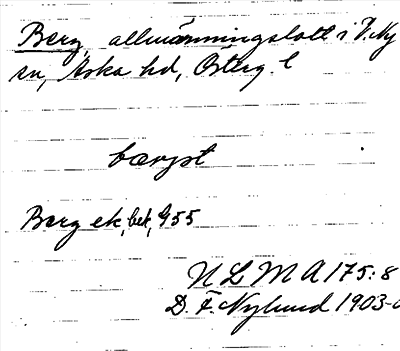 Berg, allmänningslott i V. Ny
sn, Aska hd, Österg. l
bærjst
Berg ek, bek, 955
N L M A 175:8
D. F. Nylund 1903-